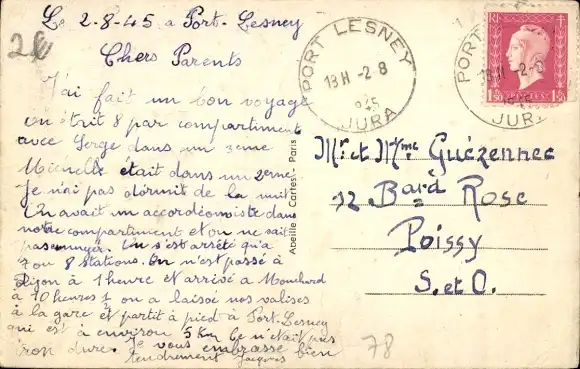 2€
Le 2-8-45 a Port-Lesney
Chers Parents
J'ai fait un bon voyage
on était 8 par compartiment
avec Serge dans un 3eme
Michelle était dans un 2eme.
Je n'ai pas dormit de la nuit
On avait un accordéoniste dans
notre compartiment et on ne sait
pas ennuyer. On s'est arrété qu'a
7 ou 8 stations. On n'est passé à
Dijon à 1 heure et arrivé a Mouchard
à 10 heures ½ on a laissé nos valises
à la gare et partit à pied à Port-Lesney
qui est à environ 5 Km ce n'était pas
trop dure. Je vous embrasse bien
tendrement Jacques
Abeille - Cartes - Paris
PORT LESNEY
18H -2-8
1945
JURA
PORT
18H -2-8
1945
JURA
RF
1F50 POSTES 1F50
Mr et Mme Guézennec
12 Bard Rose
Poissy
S. et O.
78